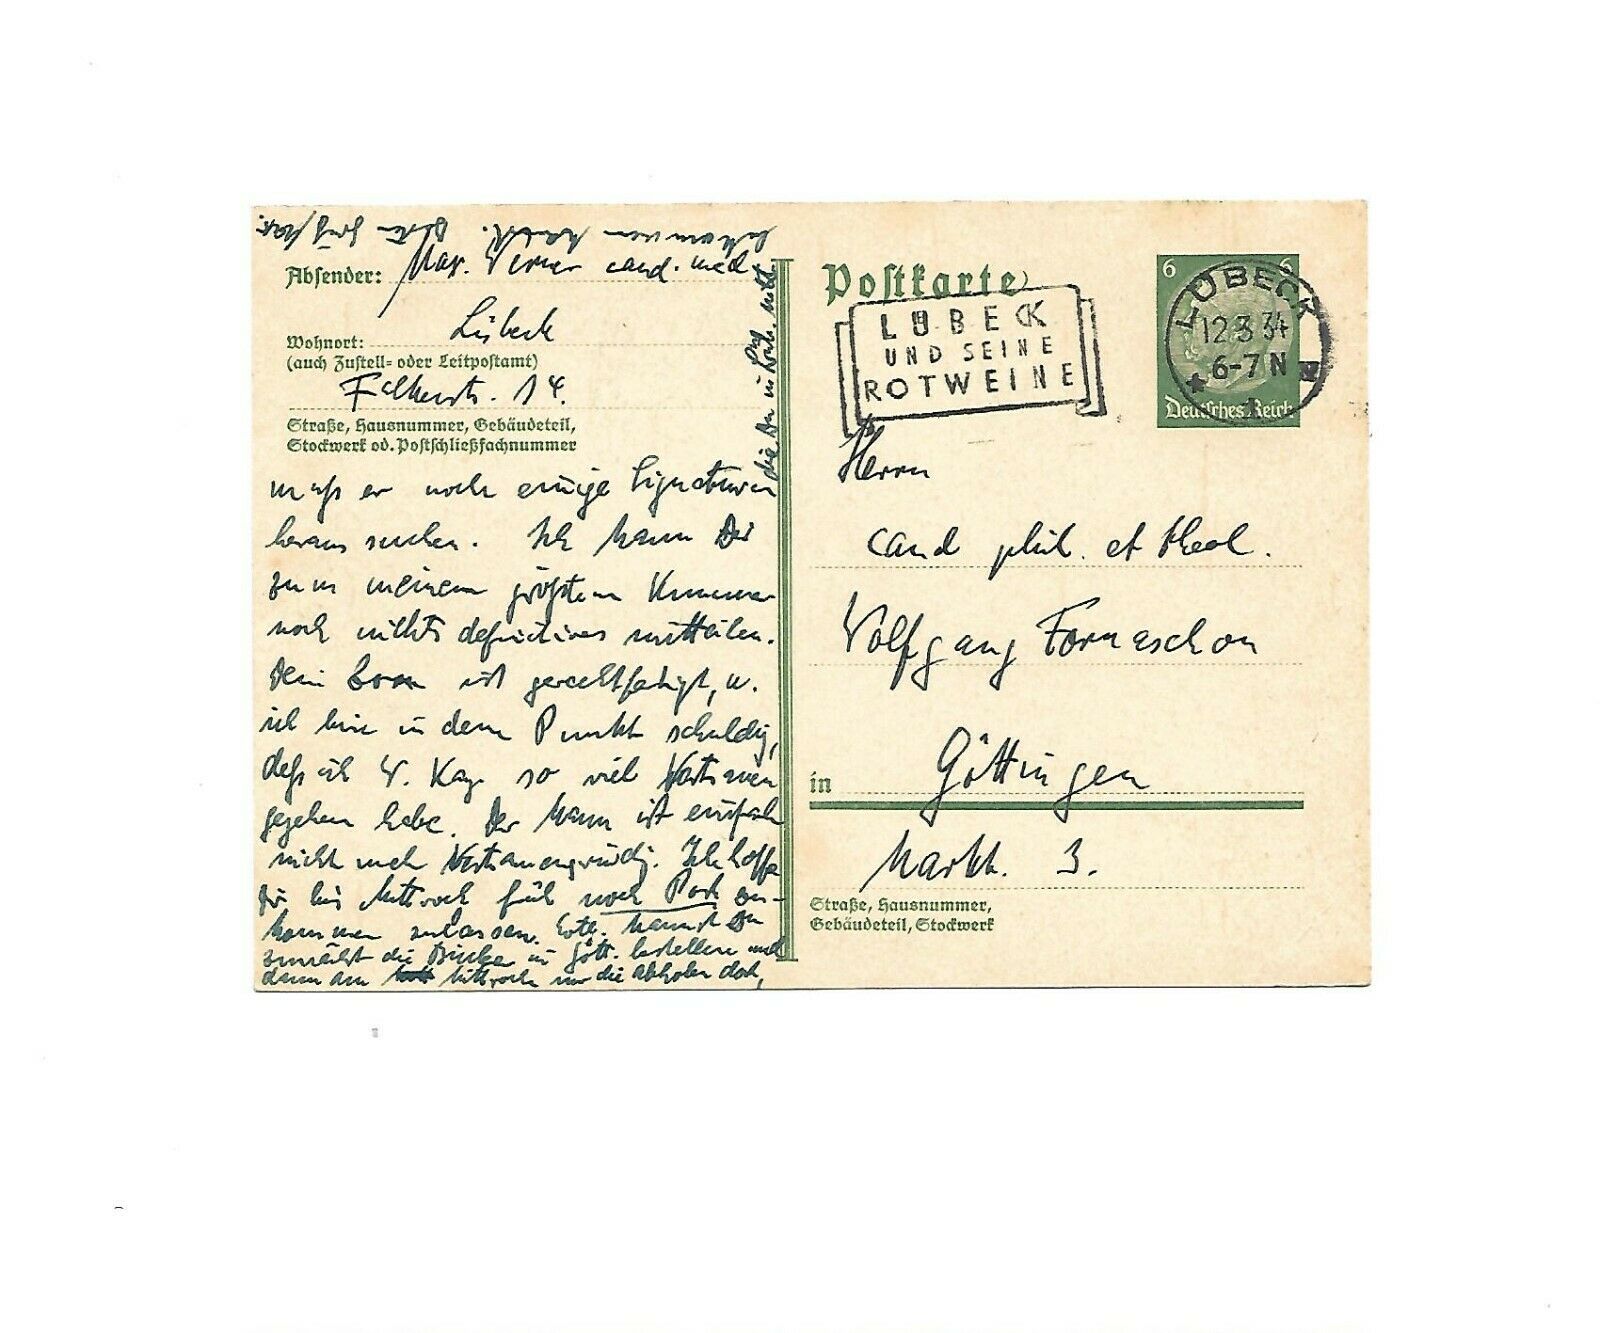 Absender: Max. Werner cand. med.
Wohnort: Lübeck
(auch Zustell- oder Leitpostamt)
Falkenstr. 14.
Straße, Hausnummer, Gebäudeteil,
Stockwerk od. Postschließfachnummer
muß er noch einige Signaturen
heraus suchen. Ich kann Dir
zu meinem größten Kummer
noch nichts definitives mitteilen.
Dein ist gerechtfertigt, u.
ich bin in dem Punkt schuldig,
daß ich W. Kay so viel Vertrauen
gegeben habe. Der Mann ist einfach
nicht mehr Vertrauenswürdig. Ich hoffe
Dir bis Mittwoch früh noch zu-
kommen zulassen. Evtl. kannst Du
zunächst die in Gött. bestellen und
dann am Mittwoch nur die abholen doch,
die Du in nicht
bekommen hast. Besten Gruß
Postkarte
LÜBECK
UND SEINE
ROTWEINE
6 6
LÜBECK
12.3.34
6-7 N
Deutsches Reich
Herrn
cand phil. et theol.
Wolfgang Fornaschon
in Göttingen
Markt. 3.
Straße, Hausnummer,
Gebäudeteil, Stockwerk